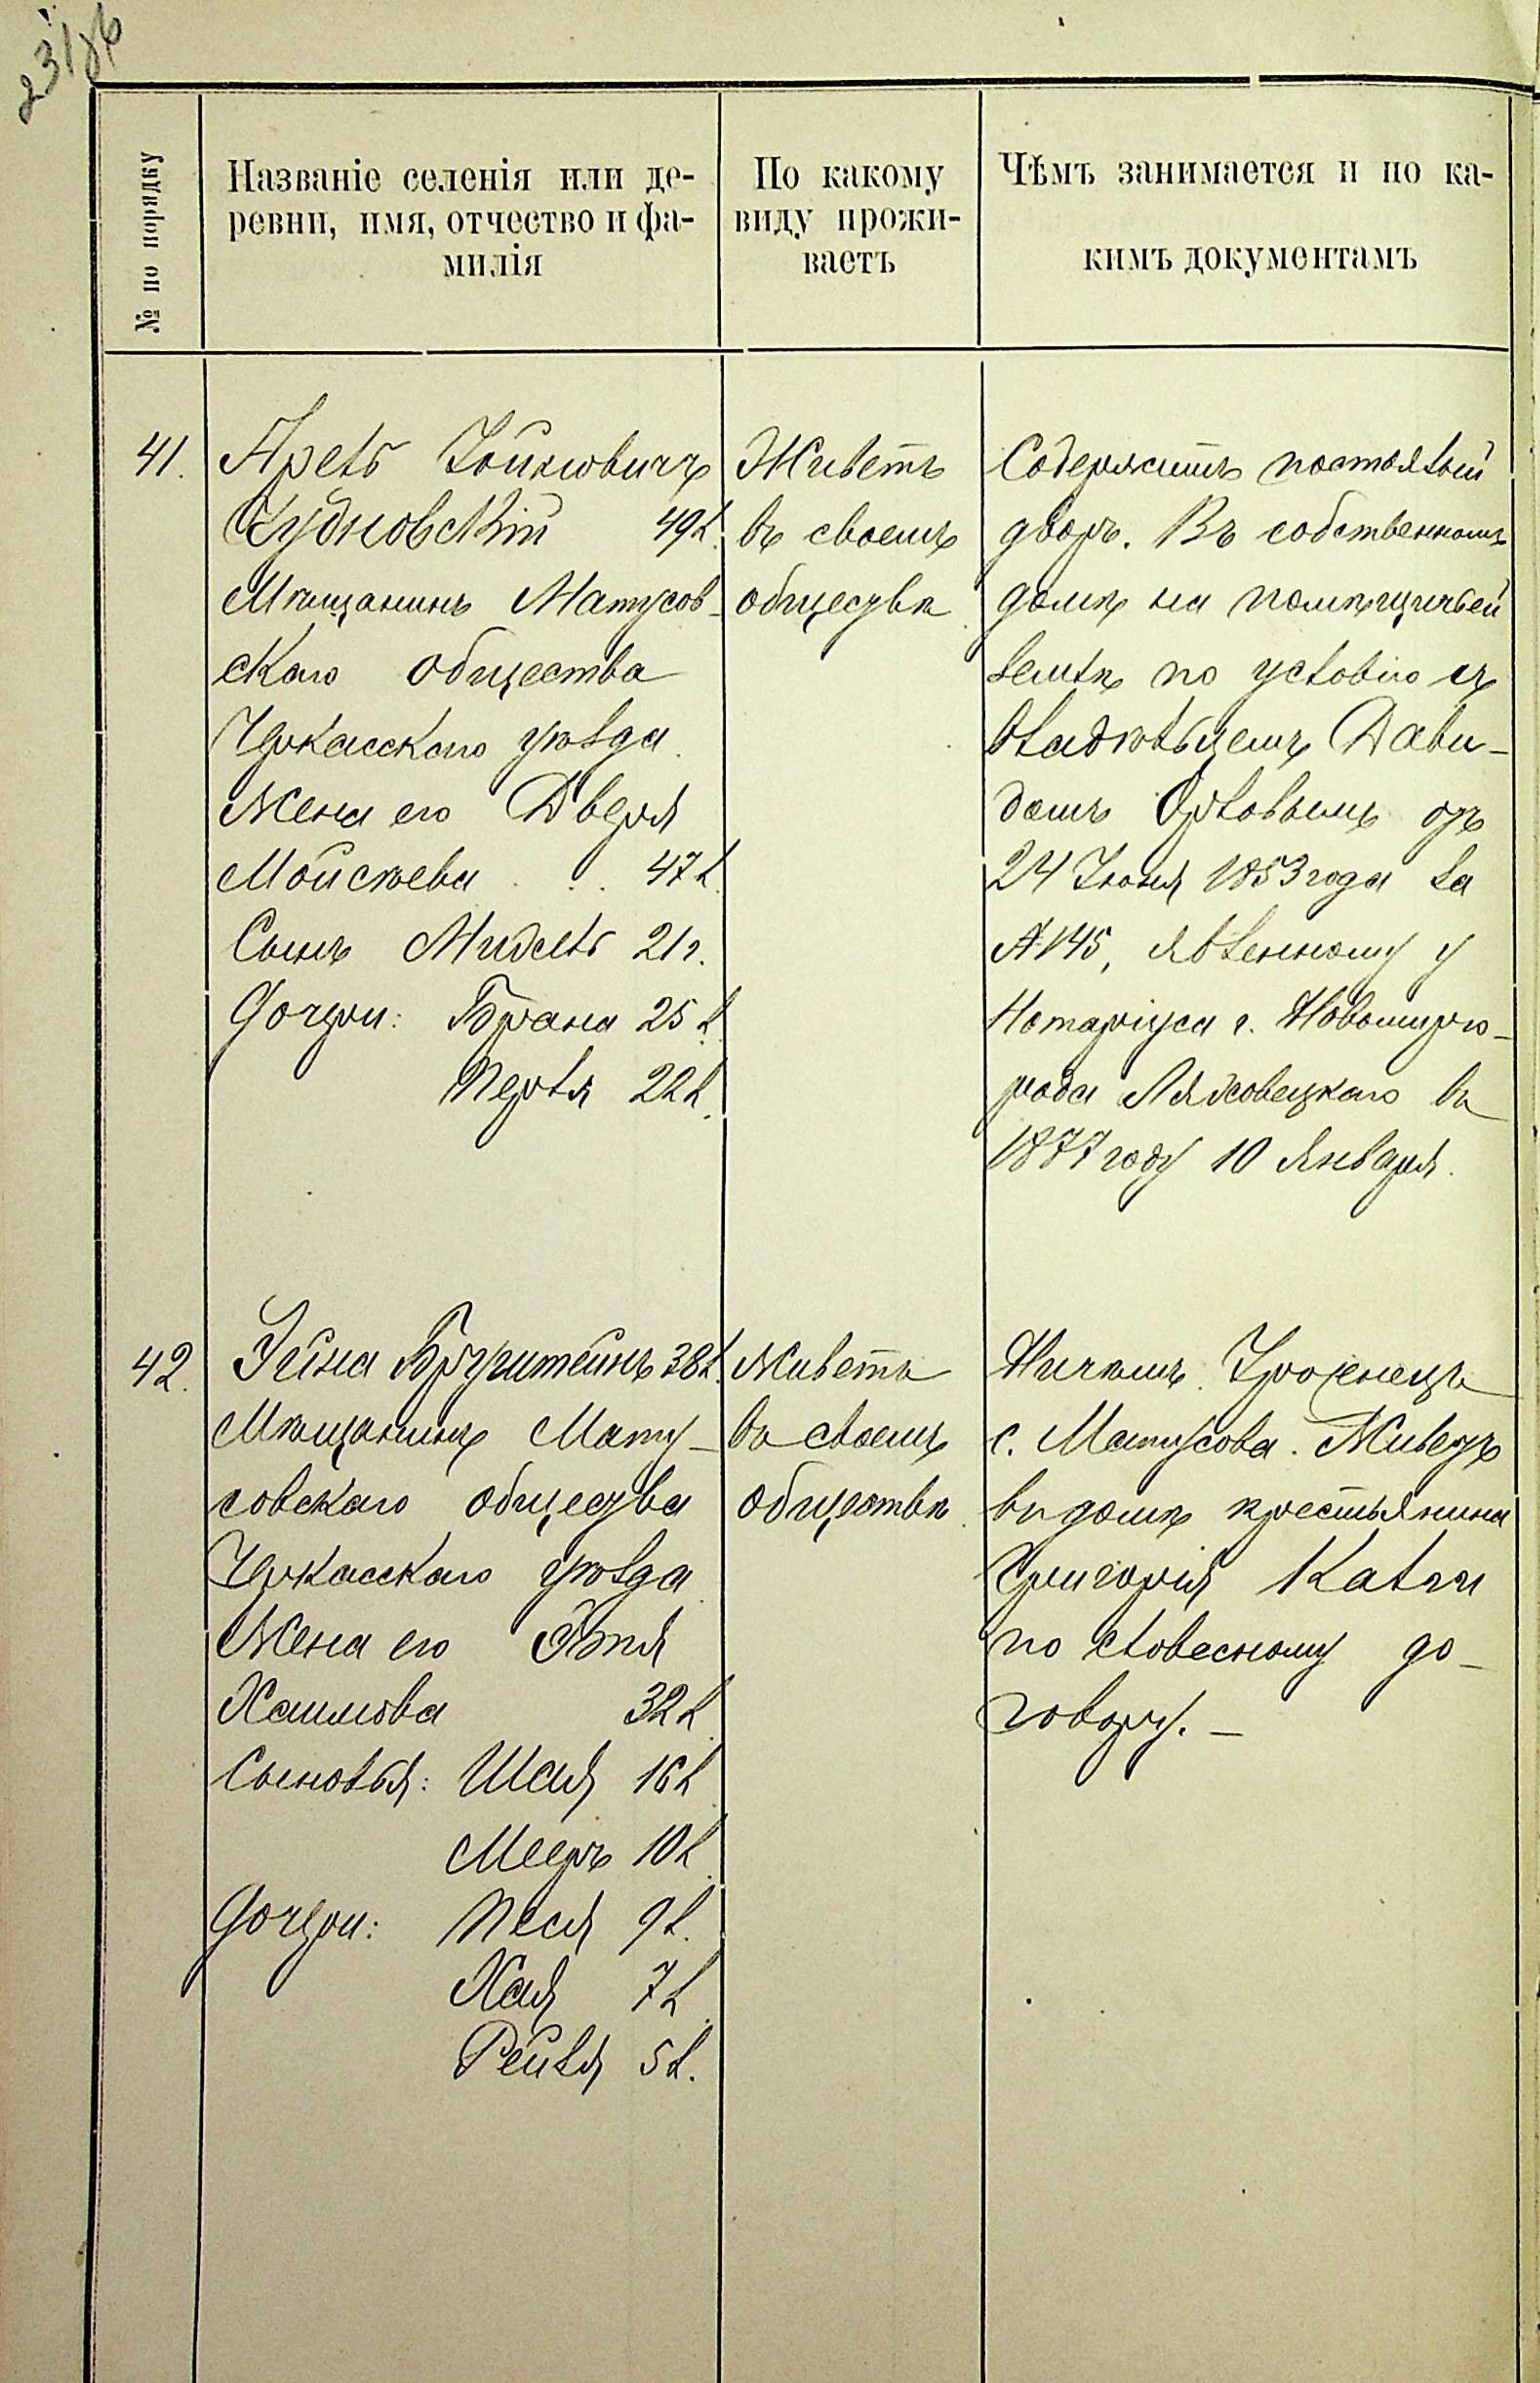 231 об
№ по порядку
Названіе селенія или де-
ревни, имя, отчество и фа-
милія
По какому
виду прожи-
ваетъ
Чѣмъ занимается и по ка-
кимъ документамъ
41.
Арель
Чудновскій 49 л.
Мѣщанинъ Матусов-
скаго общества
Черкасскаго уѣзда.
Жена его Двейра
Мойсѣева . . 47 л.
Сынъ Мидель 21 г.
Дочери: Брана 25 л.
Перля 22 л.
Живетъ
въ своемъ
обществѣ.
Содержитъ постоялый
дворъ. Въ собственномъ
домѣ на помѣщичьей
землѣ по условію съ
владѣльцемъ Дави-
домъ Орловымъ отъ
24 Іюня 1853 года за
№ 145, явленному у
Нотаріуса г. Новомирго-
рода Ляховецкаго въ
1877 году 10 Января.
42.
38 л.
Мѣщанинъ Мату-
совскаго общества
Черкасскаго уѣзда.
Жена его Этя
Хаимова 32 л.
Сыновья: Шая 16 л.
Мееръ 10 л.
Дочери: Песя 9 л.
Хая 7 л.
Рейзя 5 л.
Живетъ
въ своемъ
обществѣ.
Ничѣмъ. Уроженецъ
с. Матусова. Живетъ
въ домѣ крестьянина
Григорія
по словесному до-
говору. —